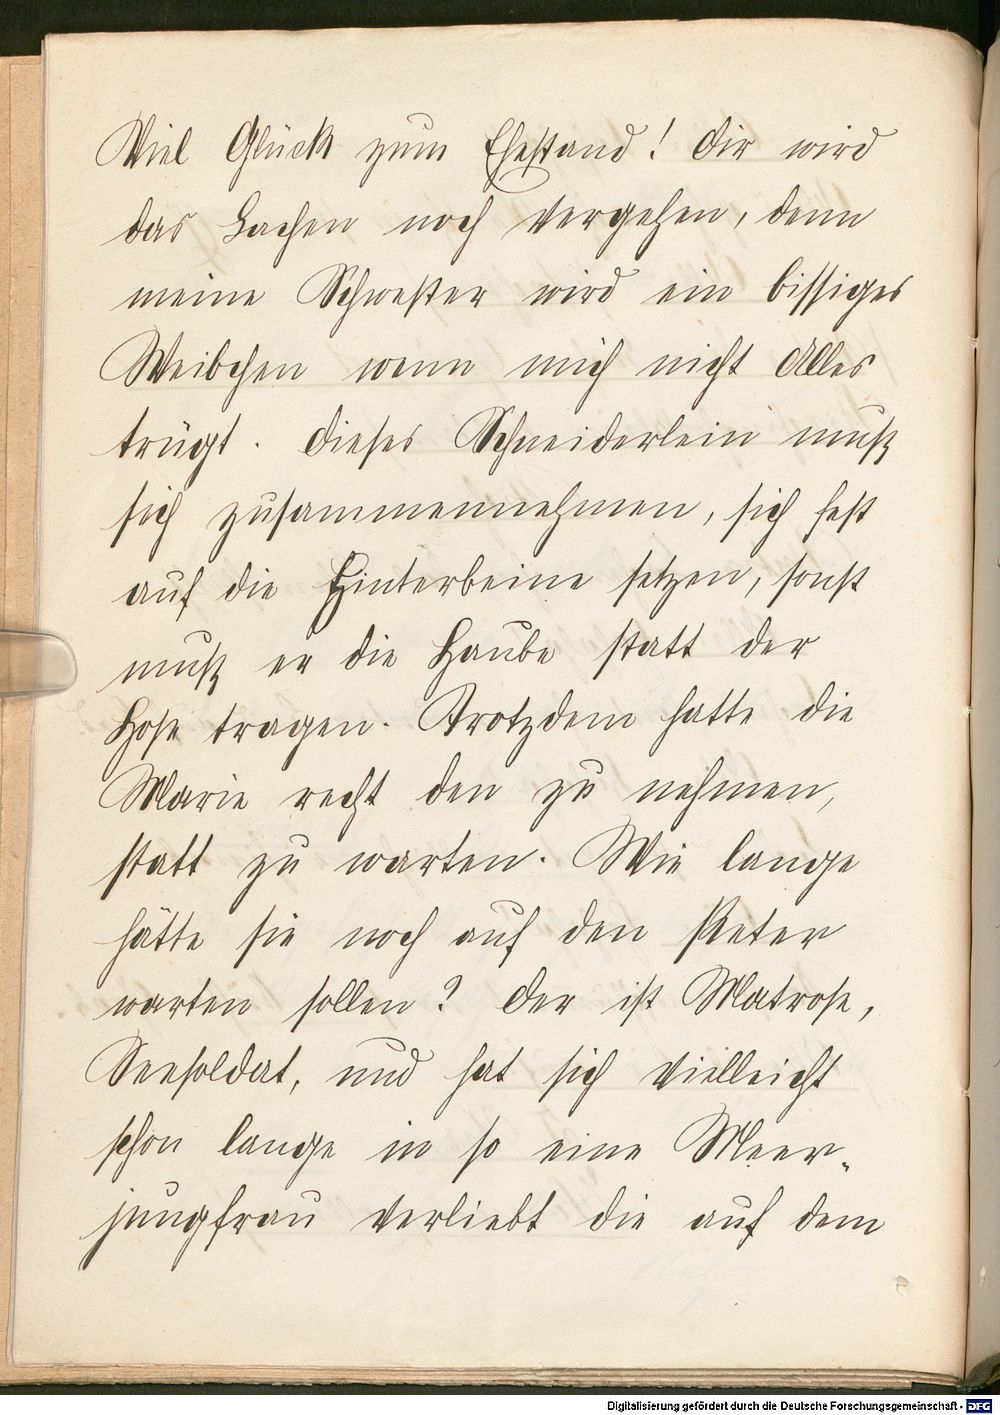 Viel Glück zum Ehestand! Dir wird
das Lachen noch vergehen, denn
meine Schwester wird ein bissiges
Weibchen wenn mich nicht Alles
trügt. Dieses Schneiderlein muß
sich zusammennehmen, sich fest
auf die Hinterbeine setzen, sonst
muß er die Haube statt der
Hose tragen. Trotzdem hatte die
Marie recht den zu nehmen,
statt zu warten. Wie lange
hätte sie noch auf den Peter
warten sollen? Der ist Matrose,
Seesoldat, und hat sich vielleicht
schon lange in so eine Meer-
jungfrau verliebt die auf dem
Digitalisierung gefördert durch die Deutsche Forschungsgemeinschaft - DFG